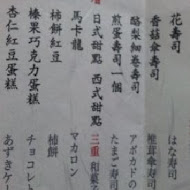 花壽司
香菇傘壽司
酪梨細卷壽司
煎蛋壽司一個
日式甜點 西式甜點
馬卡龍
柿餅紅豆
榛果巧克力蛋糕
杏仁紅豆蛋糕
はな寿司
椎茸傘寿司
アボカドの
たまご寿司
三重 和菓子
マカロン
柿餅
チョコレート
あずきケー